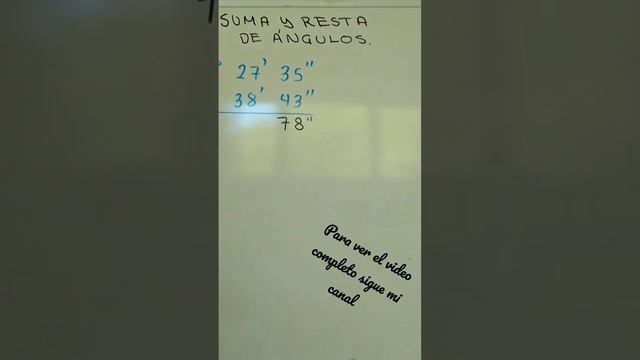 SUMA Y RESTA
DE ÁNGULOS.
27' 35"
38' 43"
78"
Para ver el video
completo sigue mi
canal